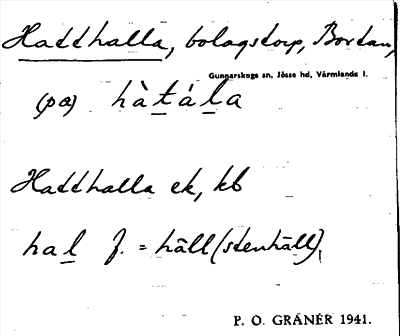 Hatthalla, bolagstorp, Bortan,
Gunnarskogs sn, Jösse hd, Värmlands l.
(på) hàṯáḻa
Hatthalla ek, kb
haḻ f. = häll (stenhäll),
P. O. GRÄNÉR 1941.